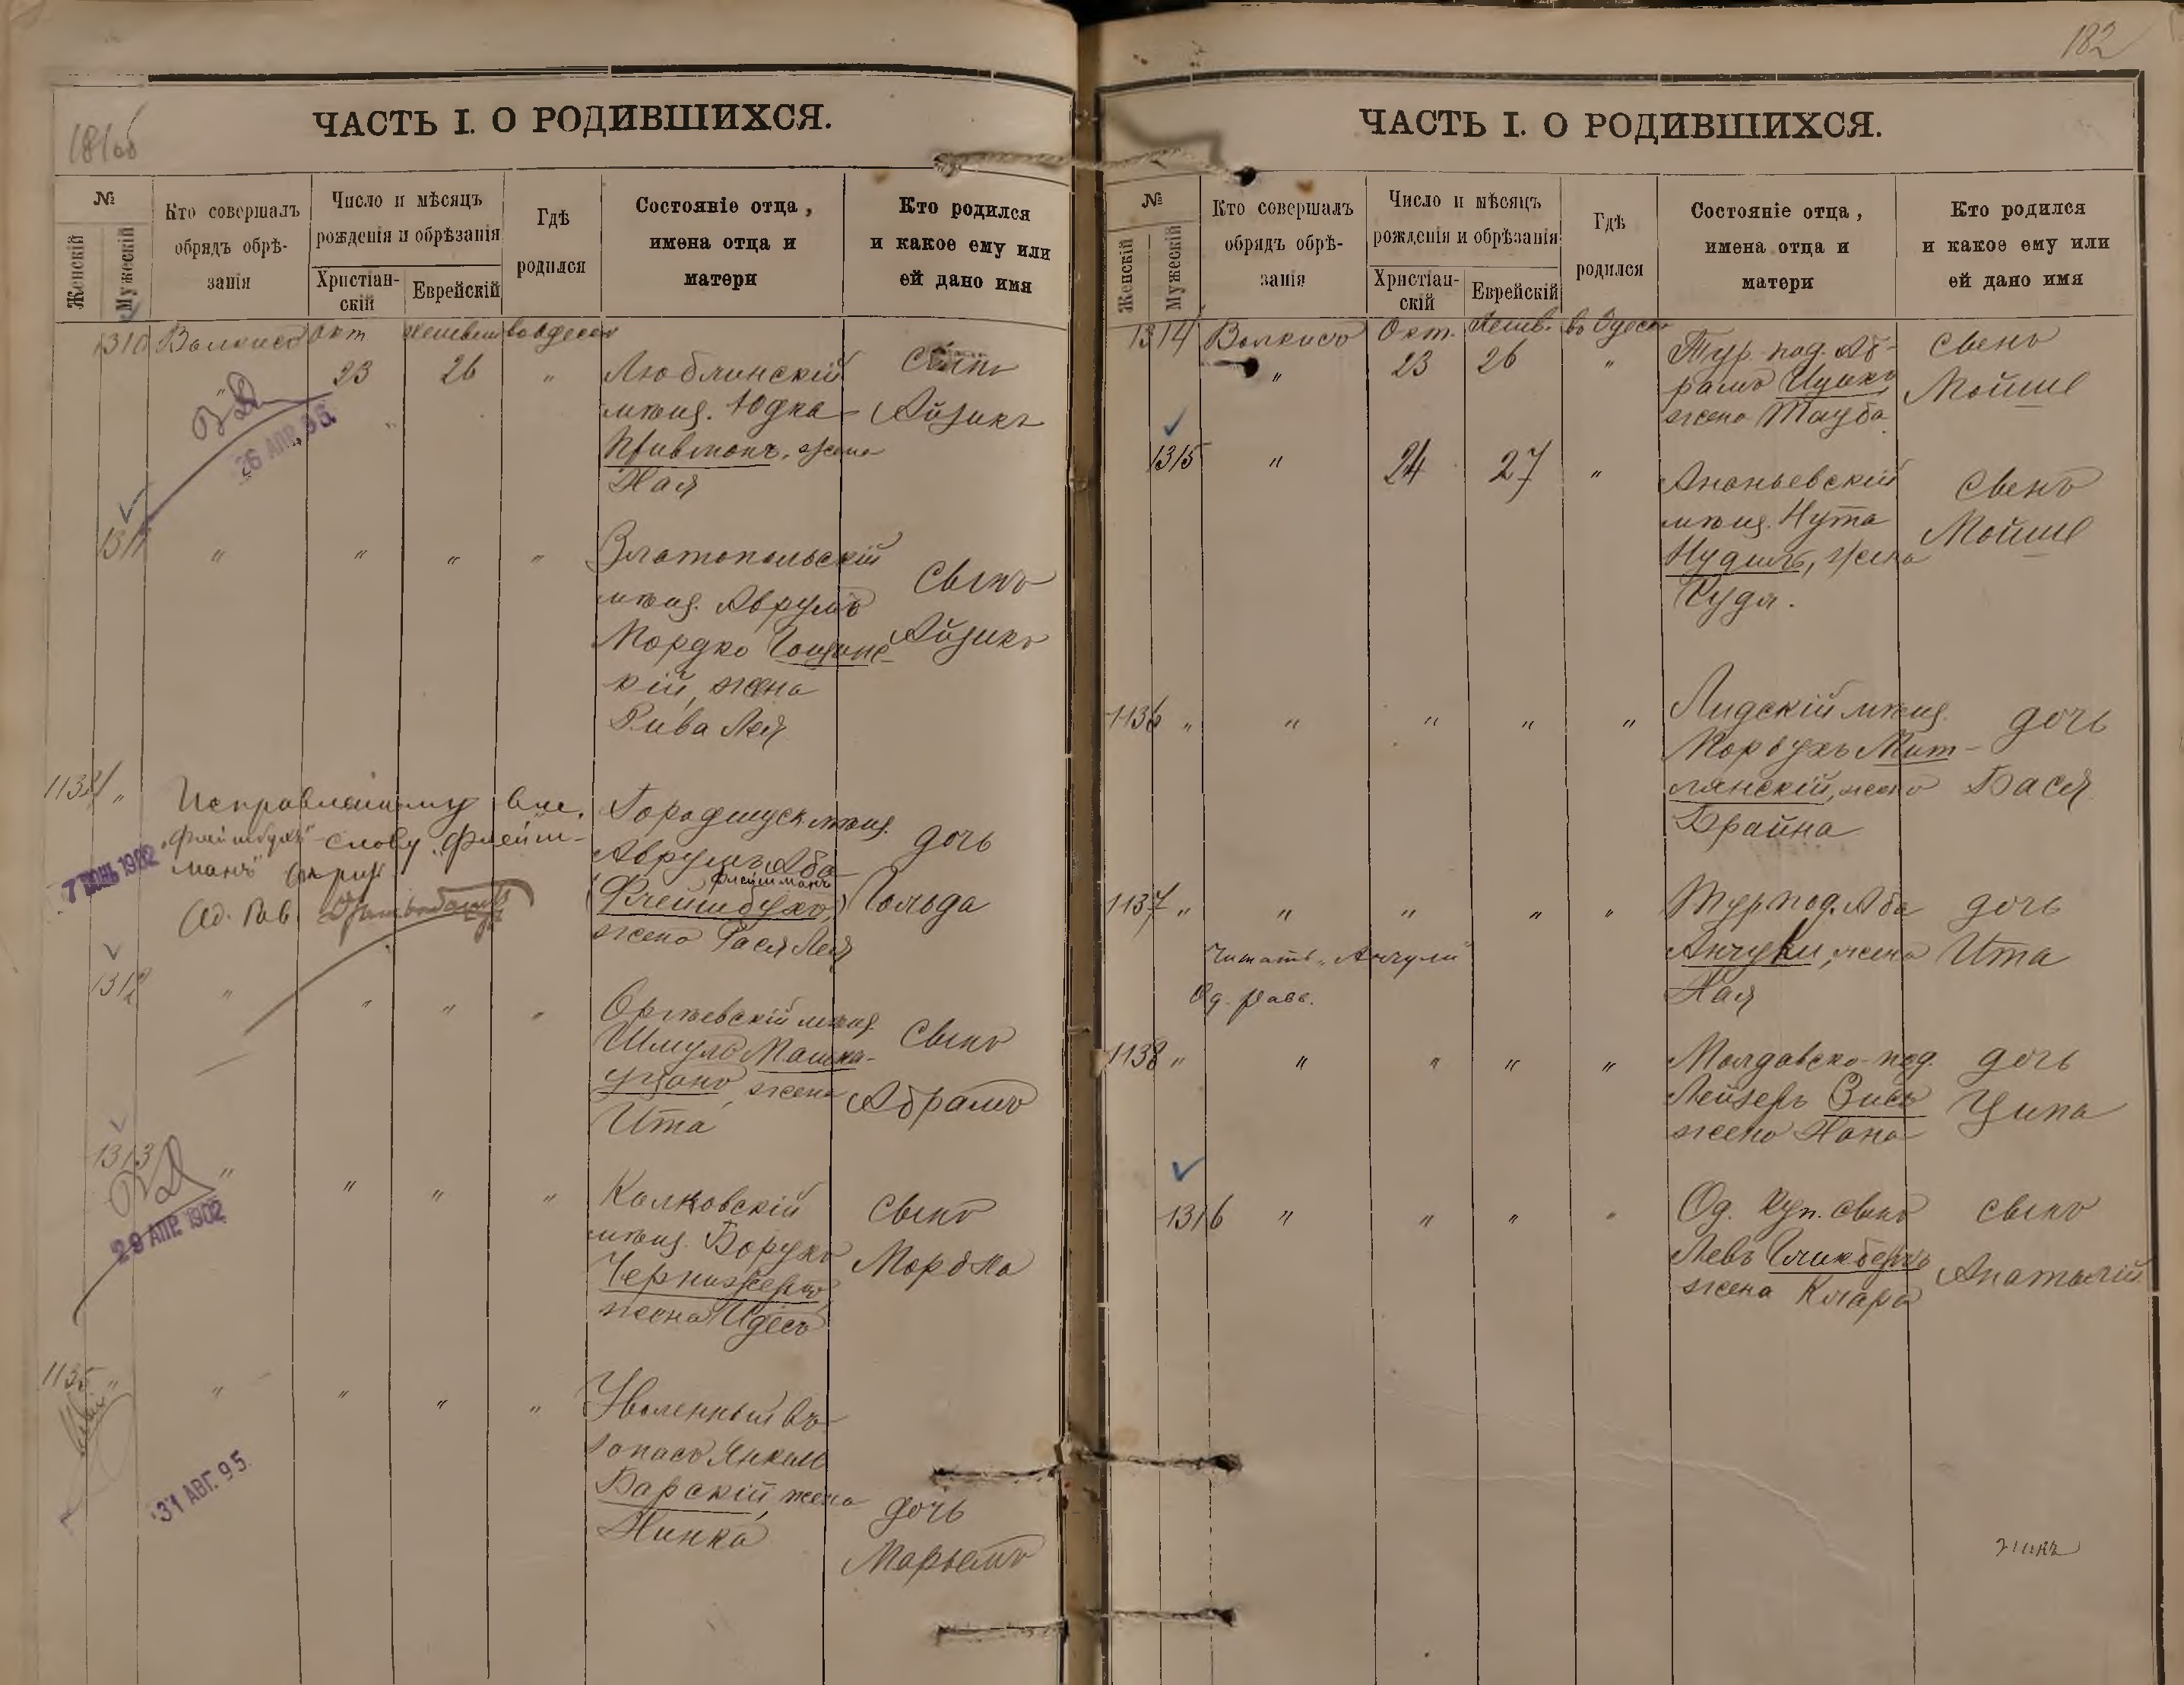 181об
ЧАСТЬ I. О РОДИВШИХСЯ.
№
Женскій
Мужескій
Кто совершалъ
обрядъ обрѣ-
занія
Число и мѣсяцъ
рожденія и обрѣзанія
Христіан-
скій
Еврейскій
Гдѣ
родился
Состояніе отца,
имена отца и
матери
Кто родился
и какое ему или
ей дано имя
1310 Волкисъ Окт Хешвен въ Одессѣ
" 23 26 " Люблинскій Сынъ
мѣщ. Юдка Айзикъ
Кривмонъ, жена
Хая
26 АПР. 96.
1311 " " " " Златопольскій
мѣщ. Аврумъ Сынъ
Мордко Айзикъ
кій, жена
Рива Лея
1134 " Исправленному вм.
"Флейшбухъ" слову "Флейш-
манъ" вѣрить
Од. Рав.
7 ІЮНЬ 1902
Городищск. мѣщ. дочь
Аврумъ Аба
Флейшманъ
(Флейшбухъ) Гольда
жена Рася Лея
1312 " " " " Оргѣевскій мѣщ.
Шмуль Машка- Сынъ
уцанъ, жена Абрамъ
Ита
1313 " " " " Калковскій Сынъ
мѣщ. Борухъ Мордко
жена Идесъ
29 АПР. 1902
1135 " " " " " Уволенный въ
запасъ Янкель
Барскій, жена дочь
Хинка Марьемъ
31 АВГ. 95.
182
ЧАСТЬ I. О РОДИВШИХСЯ.
№
Женскій
Мужескій
Кто совершалъ
обрядъ обрѣ-
занія
Число и мѣсяцъ
рожденія и обрѣзанія
Христіан-
скій
Еврейскій
Гдѣ
родился
Состояніе отца,
имена отца и
матери
Кто родился
и какое ему или
ей дано имя
1314 Волкисъ Окт. Хешв. въ Одессѣ
" 23 26 " Тур. под. Аб- Сынъ
рамъ Ицко Мойше
жена Тауба
1315 " 24 27 " Ананьевскій Сынъ
мѣщ. Нута Мойше
Нудиль, жена
Гудя.
1136 " " " " " Лидскій мѣщ. дочь
Мордухъ Мит-
лянскій, жена Бася
Брайна
1137 " " " " " Тур. под. Аба дочь
Анчуки, жена Ита
Хая
Читать "Анчули"
Од. равв.
1138 " " " " " Молдавско-под. дочь
Лейзеръ Зись Ципа
жена Хана
1316 " " " " Од. куп. сынъ Сынъ
Левъ Гликбергъ Анатолій
жена Клара